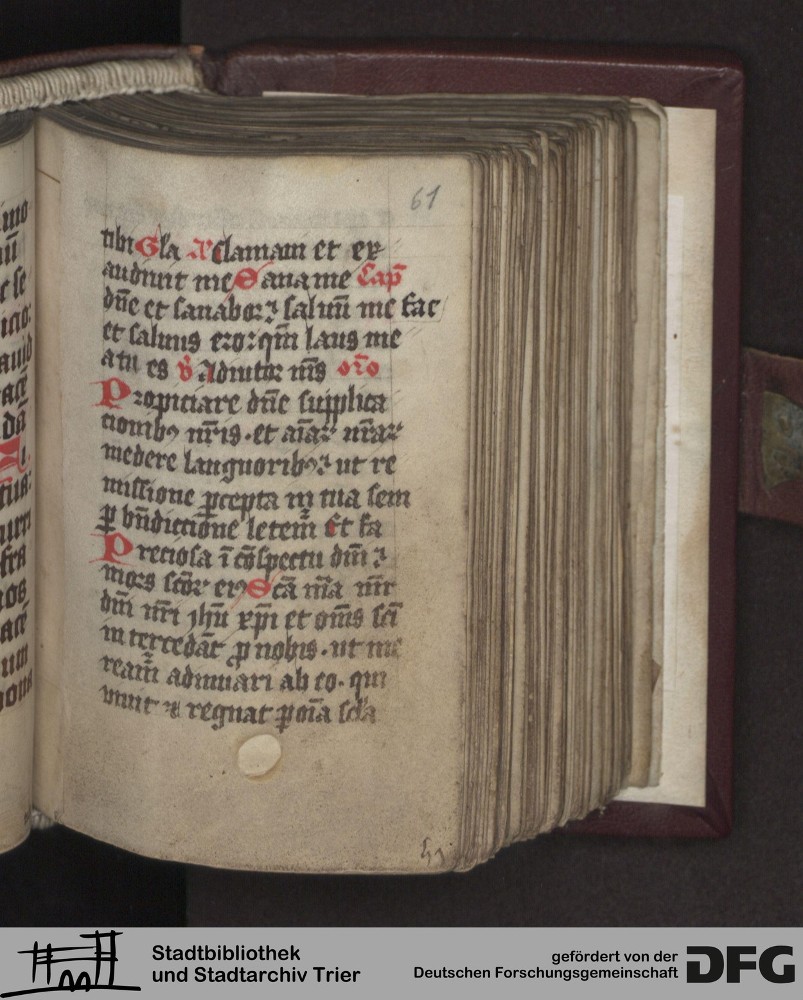 61
tibi Gla Exclamaui et ex
audiuit me Sana me Cap̄
dn̄e et sanaborꝫ saluū me fac
et saluus eroꝛ qm̄ laus me
a tu es v̄ Adiutor nr̄s or̄o
Propiciare dn̄e supplica
cionibꝰ nr̄is · et aīaꝝ nr̄aꝝ
medere languoribꝰꝫ ut re
missione ꝑcepta in tua sem
ꝑ bn̄dictione letem̄ Et fa
Preciosa ī cōspectu dn̄i ꝫ
mors sc̄oꝝ eiꝰ Sc̄a m̄a
dn̄i nr̄i ihū xp̄i et om̄s sc̄i
intercedāt ꝓ nobis · ut me
ream̄ adiuuari ab eo · qui
viuit ⁊ regnat ꝑ oīa sc̄la
Stadtbibliothek
und Stadtarchiv Trier
gefördert von der
Deutschen Forschungsgemeinschaft
DFG